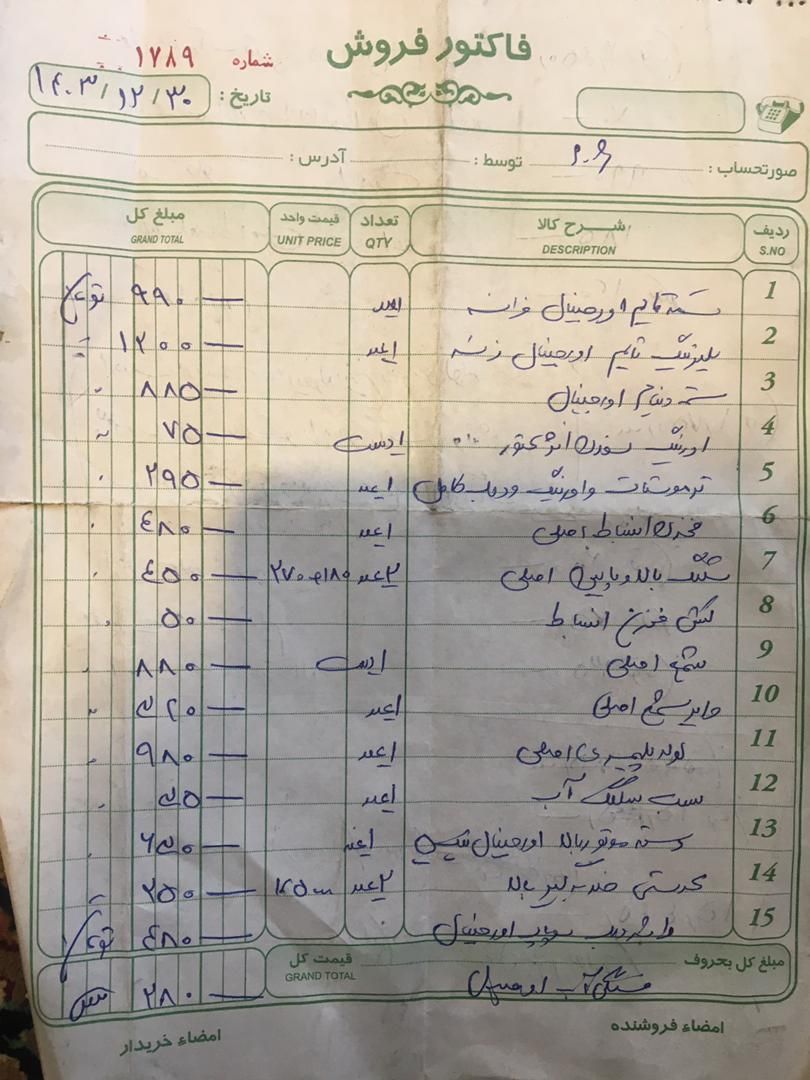 فاکتور فروش
شماره ۱۷۸۹
تاریخ: ۱۴۰۳/۱۲/۳۰
صورتحساب: توسط: آدرس:
ردیف S.NO شرح کالا DESCRIPTION تعداد QTY قیمت واحد UNIT PRICE مبلغ کل GRAND TOTAL
1 تسمه تایم اورجینال فرانسه ۱عدد ۹۹۰ —
2 بلبرینگ تایم اورجینال ۱عدد ۱۲۰۰ —
3 تسمه دینام اورجینال ۸۸۵ —
4 اورینگ سوزن انژکتور ۱دست ۷۵ —
5 ترموستات و اورینگ و درب کامل ۱عدد ۲۹۵ —
6 مخزن انبساط اصلی ۱عدد ۴۸۰ —
7 شلنگ بالا و پایین اصلی ۲عدد ۱۸۰و۲۷۰ ۴۵۰ —
8 کش مخزن انبساط ۵۰ —
9 شمع اصلی ۱دست ۸۸۰ —
10 وایر شمع اصلی ۱عدد —
11 لوله پلیمری اصلی ۱عدد ۹۸۰ —
12 بست شلنگ آب ۱عدد —
13 دسته موتور بالا اورجینال ۱عدد —
14 ۲عدد ۲۵۰ —
15 واشر درب سوپاپ اورجینال ۴۸۰ —
مبلغ کل بحروف قیمت کل GRAND TOTAL
آب ۲۸۰ —
امضاء فروشنده امضاء خریدار